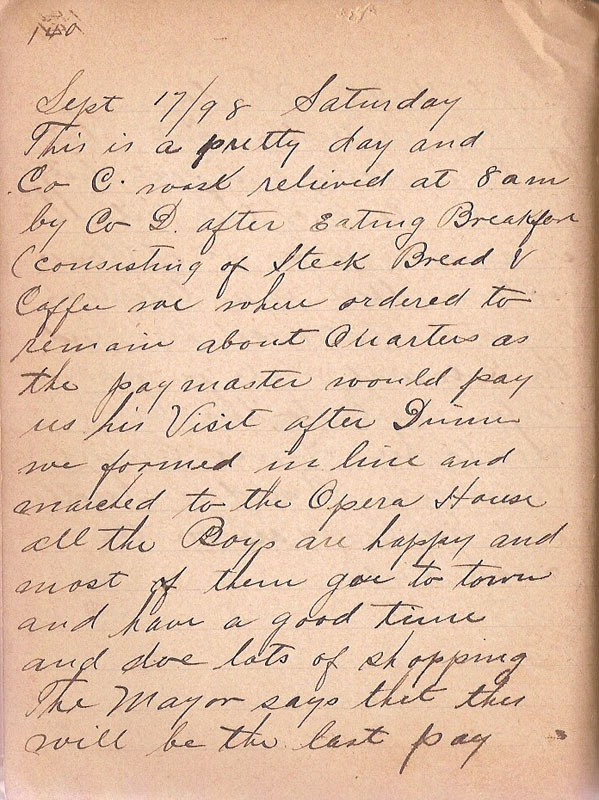 140
Sept 17/98 Saturday
This is a pretty day and
Co C. wask relieved at 8 am
by Co D. after Eating Breakfast
(consisting of Steek Bread &
Coffee we where ordered to
remain about Quarters as
the paymaster would pay
us his Visit after Dinner
we formed in line and
marched to the Opera House
all the Boys are happy and
most of them goe to town
and have a good time
and doe lots of shopping
The Mayor says thet this
will be the last pay